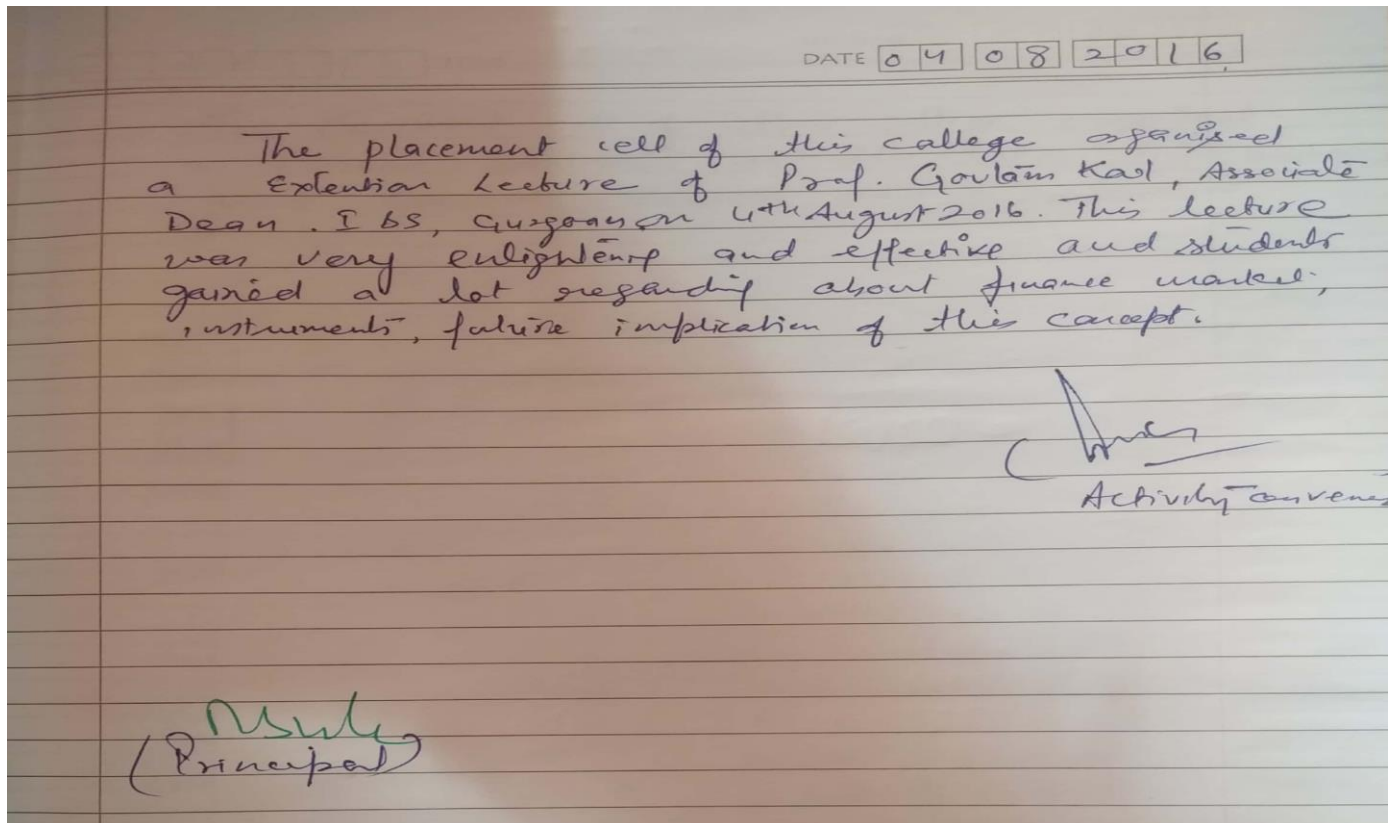 DATE 04 08 2016
The placement cell of this college organised
a Extention Lecture of Prof. Goutam Kaul, Associate
Dean. IBS, Gurgoan on 4th August 2016. This lecture
was very enlightening and effective and students
gained a lot regarding about finance market,
instruments, future implication of this concept.
Activity convener
(Principal)